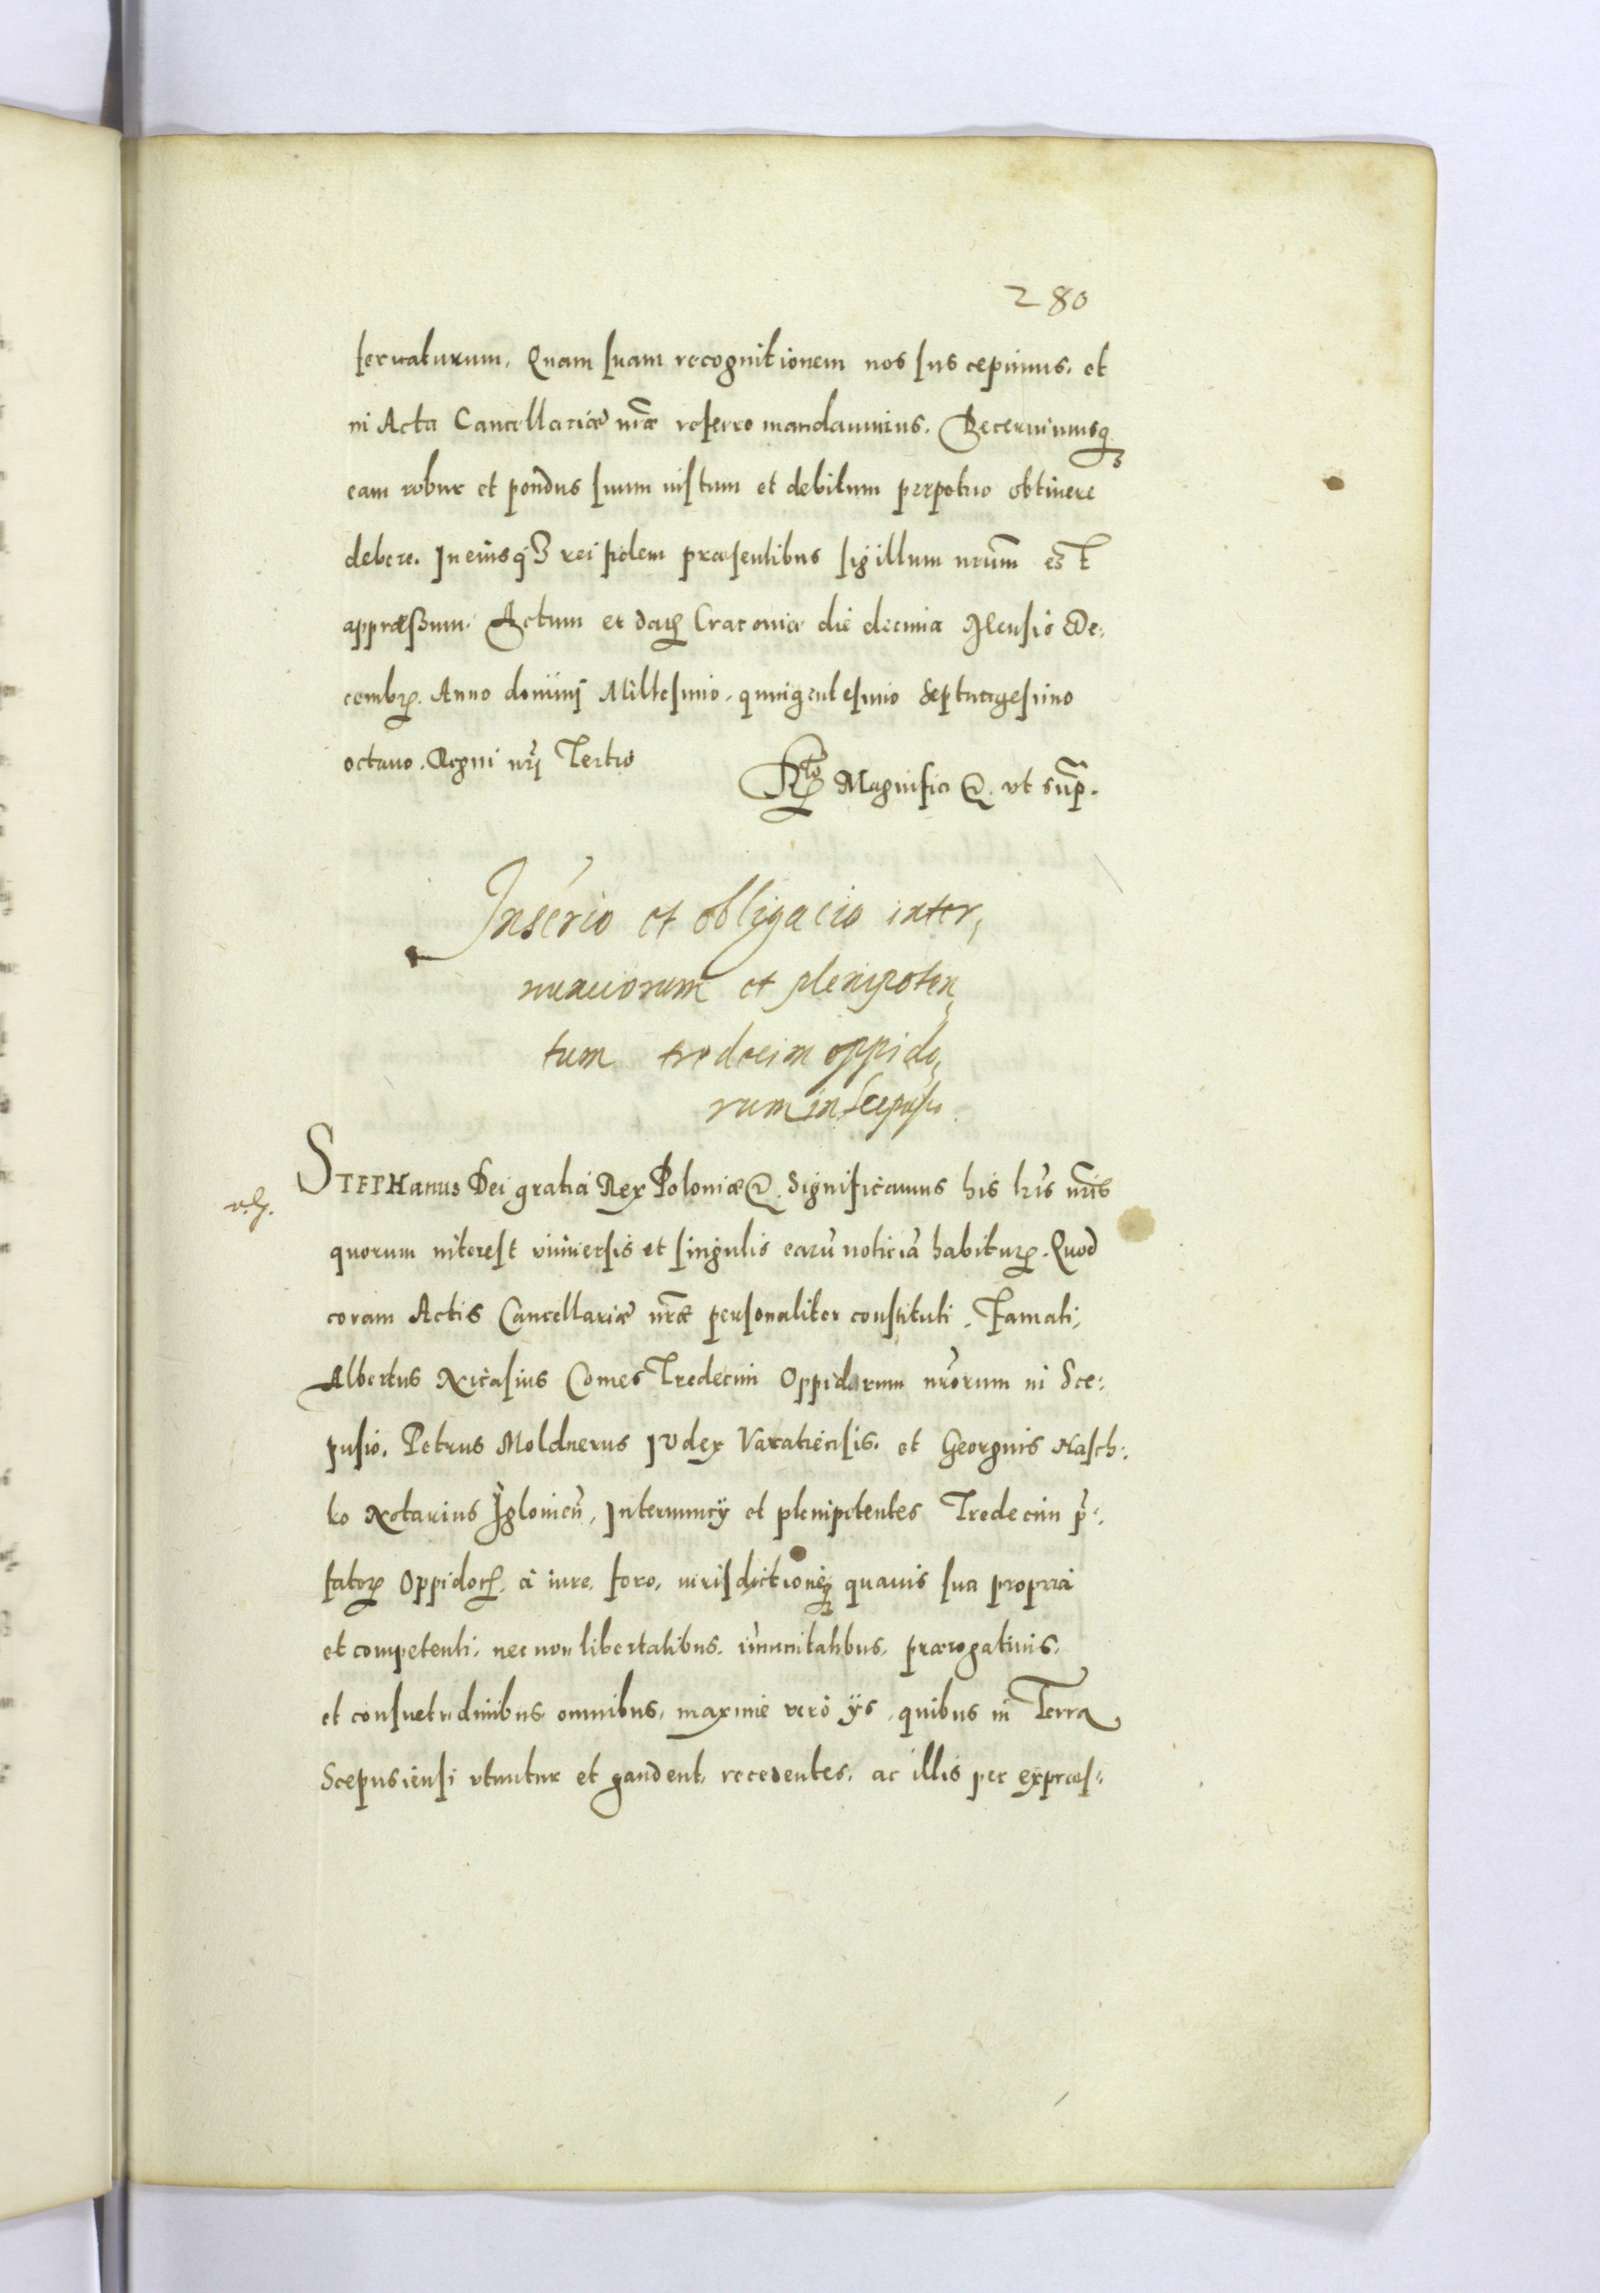 280
seruaturum. Quam suam recognitionem nos suscepimus. et
in Acta Cancellariæ nr̃æ referre mandauimus. Decernimusq₃
eam robur et pondus suum iustum et debitum perpetuo obtinere
debere. In eiusq₃ rei fidem præsentibus sigillum nrũm est
appræßum. Actum et datꝭ Cracouiæ die decima Mensis De:
cembrꝭ. Anno dominj Millesimo. quingentesimo septuagesimo
octauo. Regni nrĩ Tertio
Rᵗᵒ Magnifici &. vt sup̃.
Inscricio et obligacio inter,
nunciorum et plenipoten,
tum tredecim oppido,
rum in Scepusio
STEPHanus Dei gratia Rex Poloniæ &. Significamus his lrĩs nrĩs
quorum interest vniuersis et singulis earũ noticiã habiturꝭ. Quod
coram Actis Cancellariæ nrãe personaliter constituti. Famati,
Albertus Nicasius Comes Tredecim Oppidorum nrõrum in Sce:
pusio. Petrus Moldnerus Iudex Varaliensis. et Georgius Hasch:
ko Notarius Iglonieñ, Internuncÿ et plenipotentes Tredecim p̃:
fatorꝭ Oppidorꝭ. à iure. foro, iurisdictioneq₃ quauis sua propria
et competenti. necnon libertatibus. im̃unitatibus. prærogatiuis.
et consuetudinibus omnibus, maximè verò ÿs, quibus in Terra
Scepusiensi vtuntur et gaudent, recedentes. ac illis per expræs: